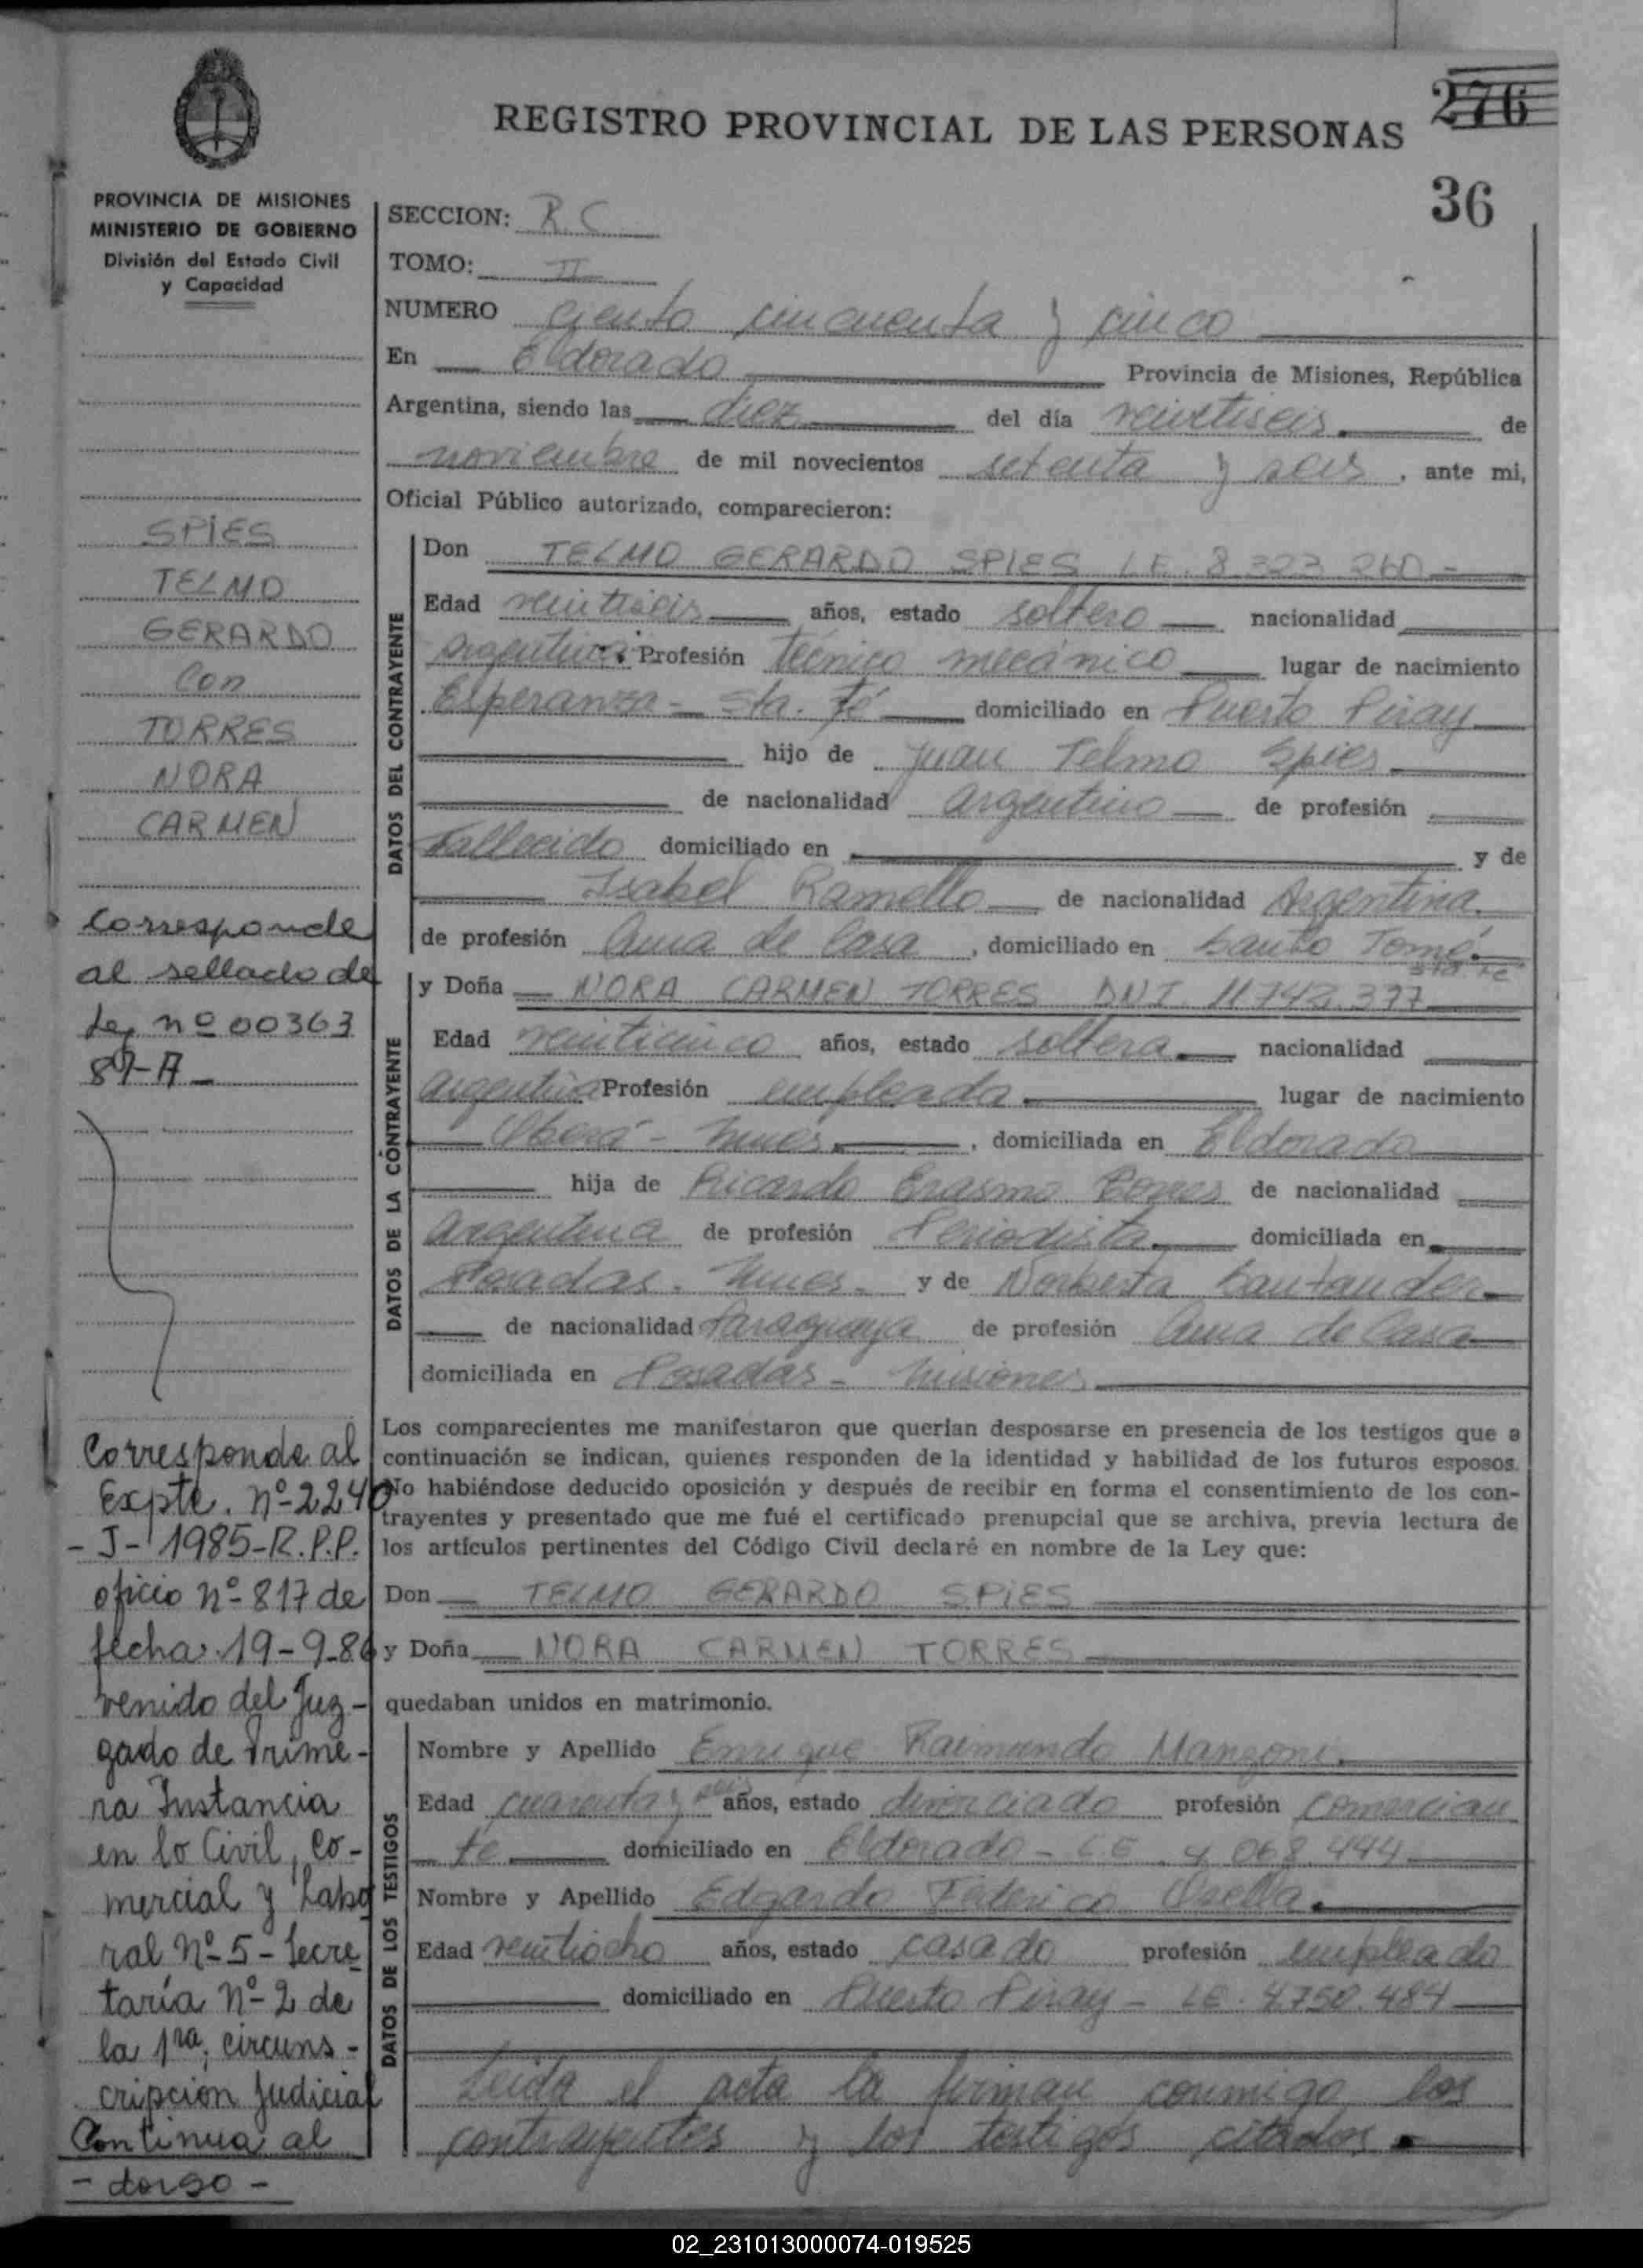 276
REGISTRO PROVINCIAL DE LAS PERSONAS
36
PROVINCIA DE MISIONES
MINISTERIO DE GOBIERNO
División del Estado Civil
y Capacidad
SPIES
TELMO
GERARDO
Con
TORRES
NORA
CARMEN
Corresponde
al sellado de
Ley nº 00363
87-A-
Corresponde al
Expte. nº 2240
- J - 1985-R.P.P.
oficio nº 817 de
fecha 19-9-86
venido del Juz-
gado de Prime-
ra Instancia
en lo Civil, Co-
mercial y Labo
ral Nº 5 - Secre
taría Nº 2 de
la 1ra. circuns-
cripción Judicial
Continua al
- dorso -
SECCION: R.C
TOMO: II
NUMERO ciento cincuenta y cinco
En Eldorado Provincia de Misiones, República
Argentina, siendo las diez del día veintiseis de
noviembre de mil novecientos setenta y seis, ante mi,
Oficial Público autorizado, comparecieron:
DATOS DEL CONTRAYENTE
Don TELMO GERARDO SPIES LE. 8.323.260.-
Edad veintiseis años, estado soltero nacionalidad
argentino. Profesión técnico mecánico lugar de nacimiento
Esperanza - Sta. Fé domiciliado en Puerto Piray
hijo de Juan Telmo Spies
de nacionalidad argentino de profesión
Fallecido domiciliado en y de
Isabel Ramello de nacionalidad Argentina
de profesión Ama de Casa, domiciliado en Santo Tomé.
Sta Fé
DATOS DE LA CONTRAYENTE
y Doña NORA CARMEN TORRES DNI. 11.742.397
Edad veinticinco años, estado soltera nacionalidad
argentina Profesión empleada lugar de nacimiento
Oberá - Mnes, domiciliada en Eldorado
hija de Ricardo Erasmo Torres de nacionalidad
argentina de profesión Periodista domiciliada en
Posadas. Mnes. y de Norberta Santander
de nacionalidad Paraguaya de profesión Ama de Casa
domiciliada en Posadas - Misiones
Los comparecientes me manifestaron que querían desposarse en presencia de los testigos que a
continuación se indican, quienes responden de la identidad y habilidad de los futuros esposos.
No habiéndose deducido oposición y después de recibir en forma el consentimiento de los con-
trayentes y presentado que me fué el certificado prenupcial que se archiva, previa lectura de
los artículos pertinentes del Código Civil declaré en nombre de la Ley que:
Don TELMO GERARDO SPIES
y Doña NORA CARMEN TORRES
quedaban unidos en matrimonio.
DATOS DE LOS TESTIGOS
Nombre y Apellido Enrique Raimundo Manzoni
Edad cuarenta y seis años, estado divorciado profesión comercian
te domiciliado en Eldorado - LE. 4.068.444
Nombre y Apellido Edgardo Federico Osella
Edad veintiocho años, estado casado profesión empleado
domiciliado en Puerto Piray - LE. 4750.484
Leida el acta la firman conmigo los
contrayentes y los testigos citados.
02_231013000074-019525